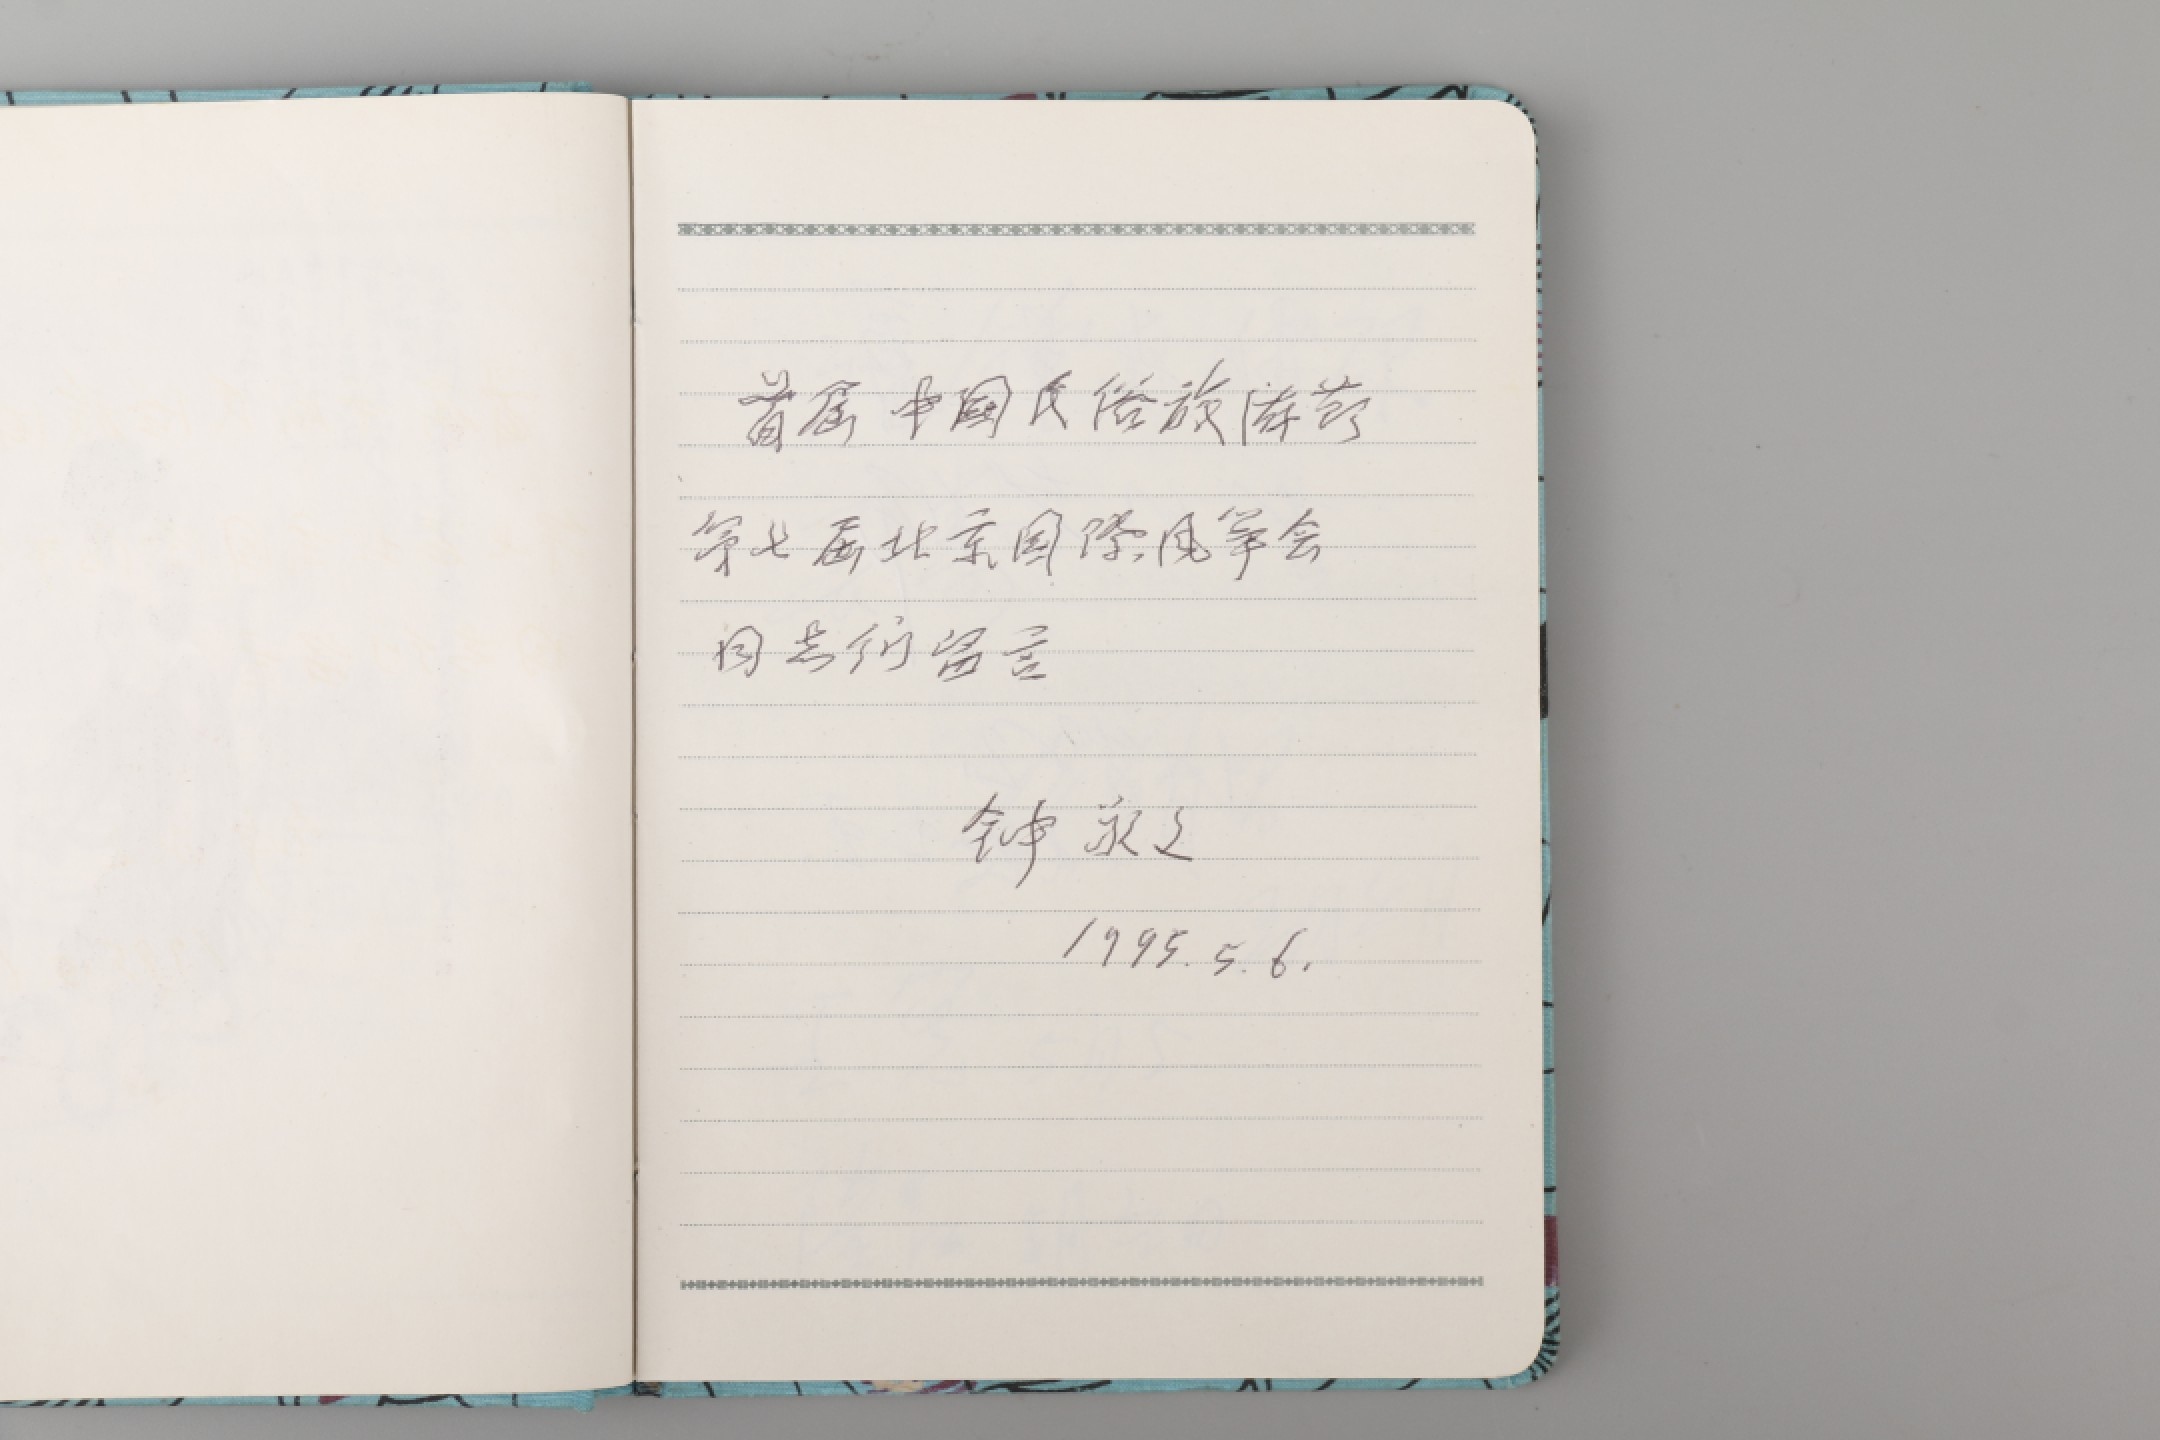 首届中国民俗旅游节
第七届北京国际风筝会
同志们留言
钟敬之
1995.5.6.